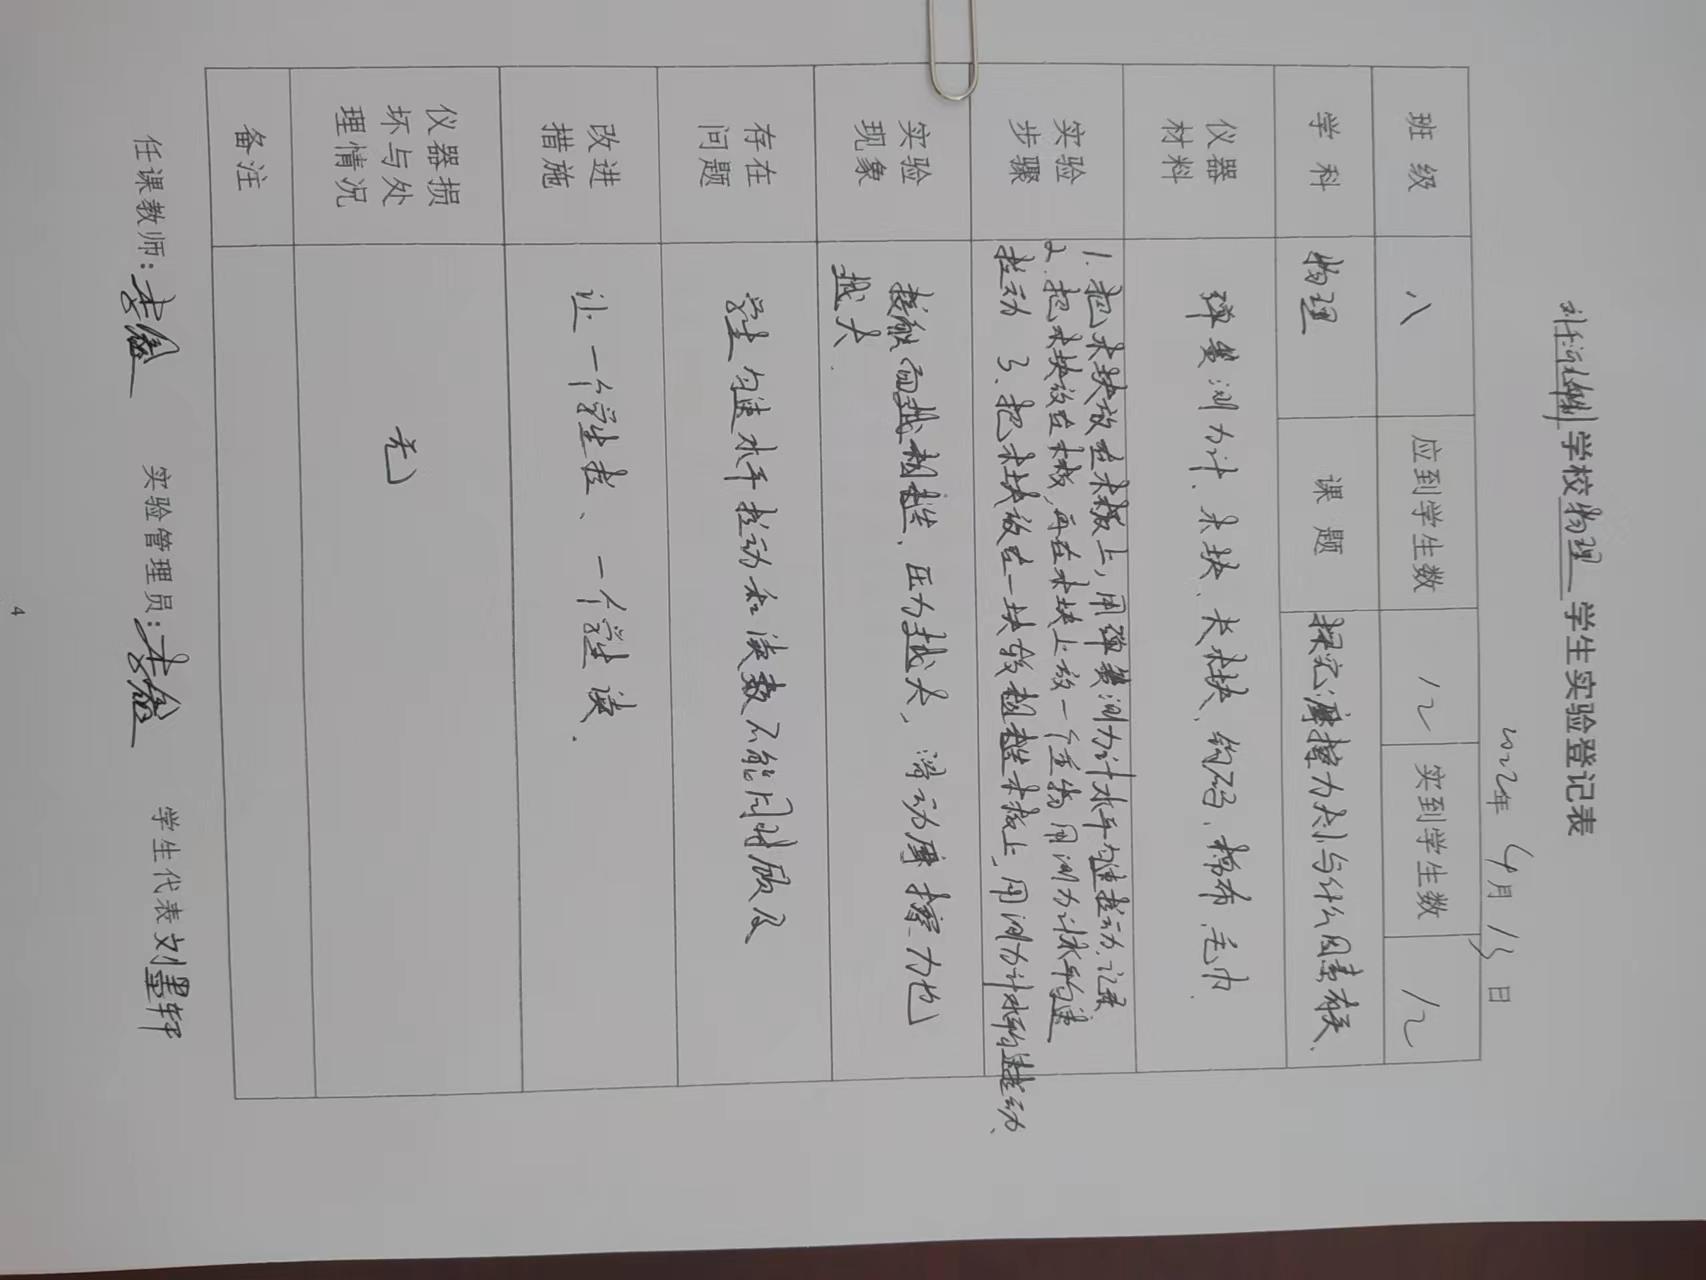 学校物理 学生实验登记表
2022年 4月 13日
班级 八 应到学生数 12 实到学生数 12
学科 物理 课题 探究摩擦力大小与什么因素有关.
仪器材料 弹簧测力计、木块、长木块、钩码、棉布、毛巾.
实验步骤
1. 把木块放在木板上,用弹簧测力计水平匀速拉动,记录
2. 把木块放在木板,再在木块上放一个重物用测力计水平匀速
拉动 3、把木块放在一块较粗糙木板上,用测力计水平匀速拉动、
实验现象
接触面越粗糙、压力越大、滑动摩擦力也
越大.
存在问题 学生匀速水平拉动和读数不能同时顾及
改进措施 让一个学生拉、一个学生读.
仪器损坏与处理情况 无
备注
任课教师: 实验管理员: 学生代表 刘墨轩
4